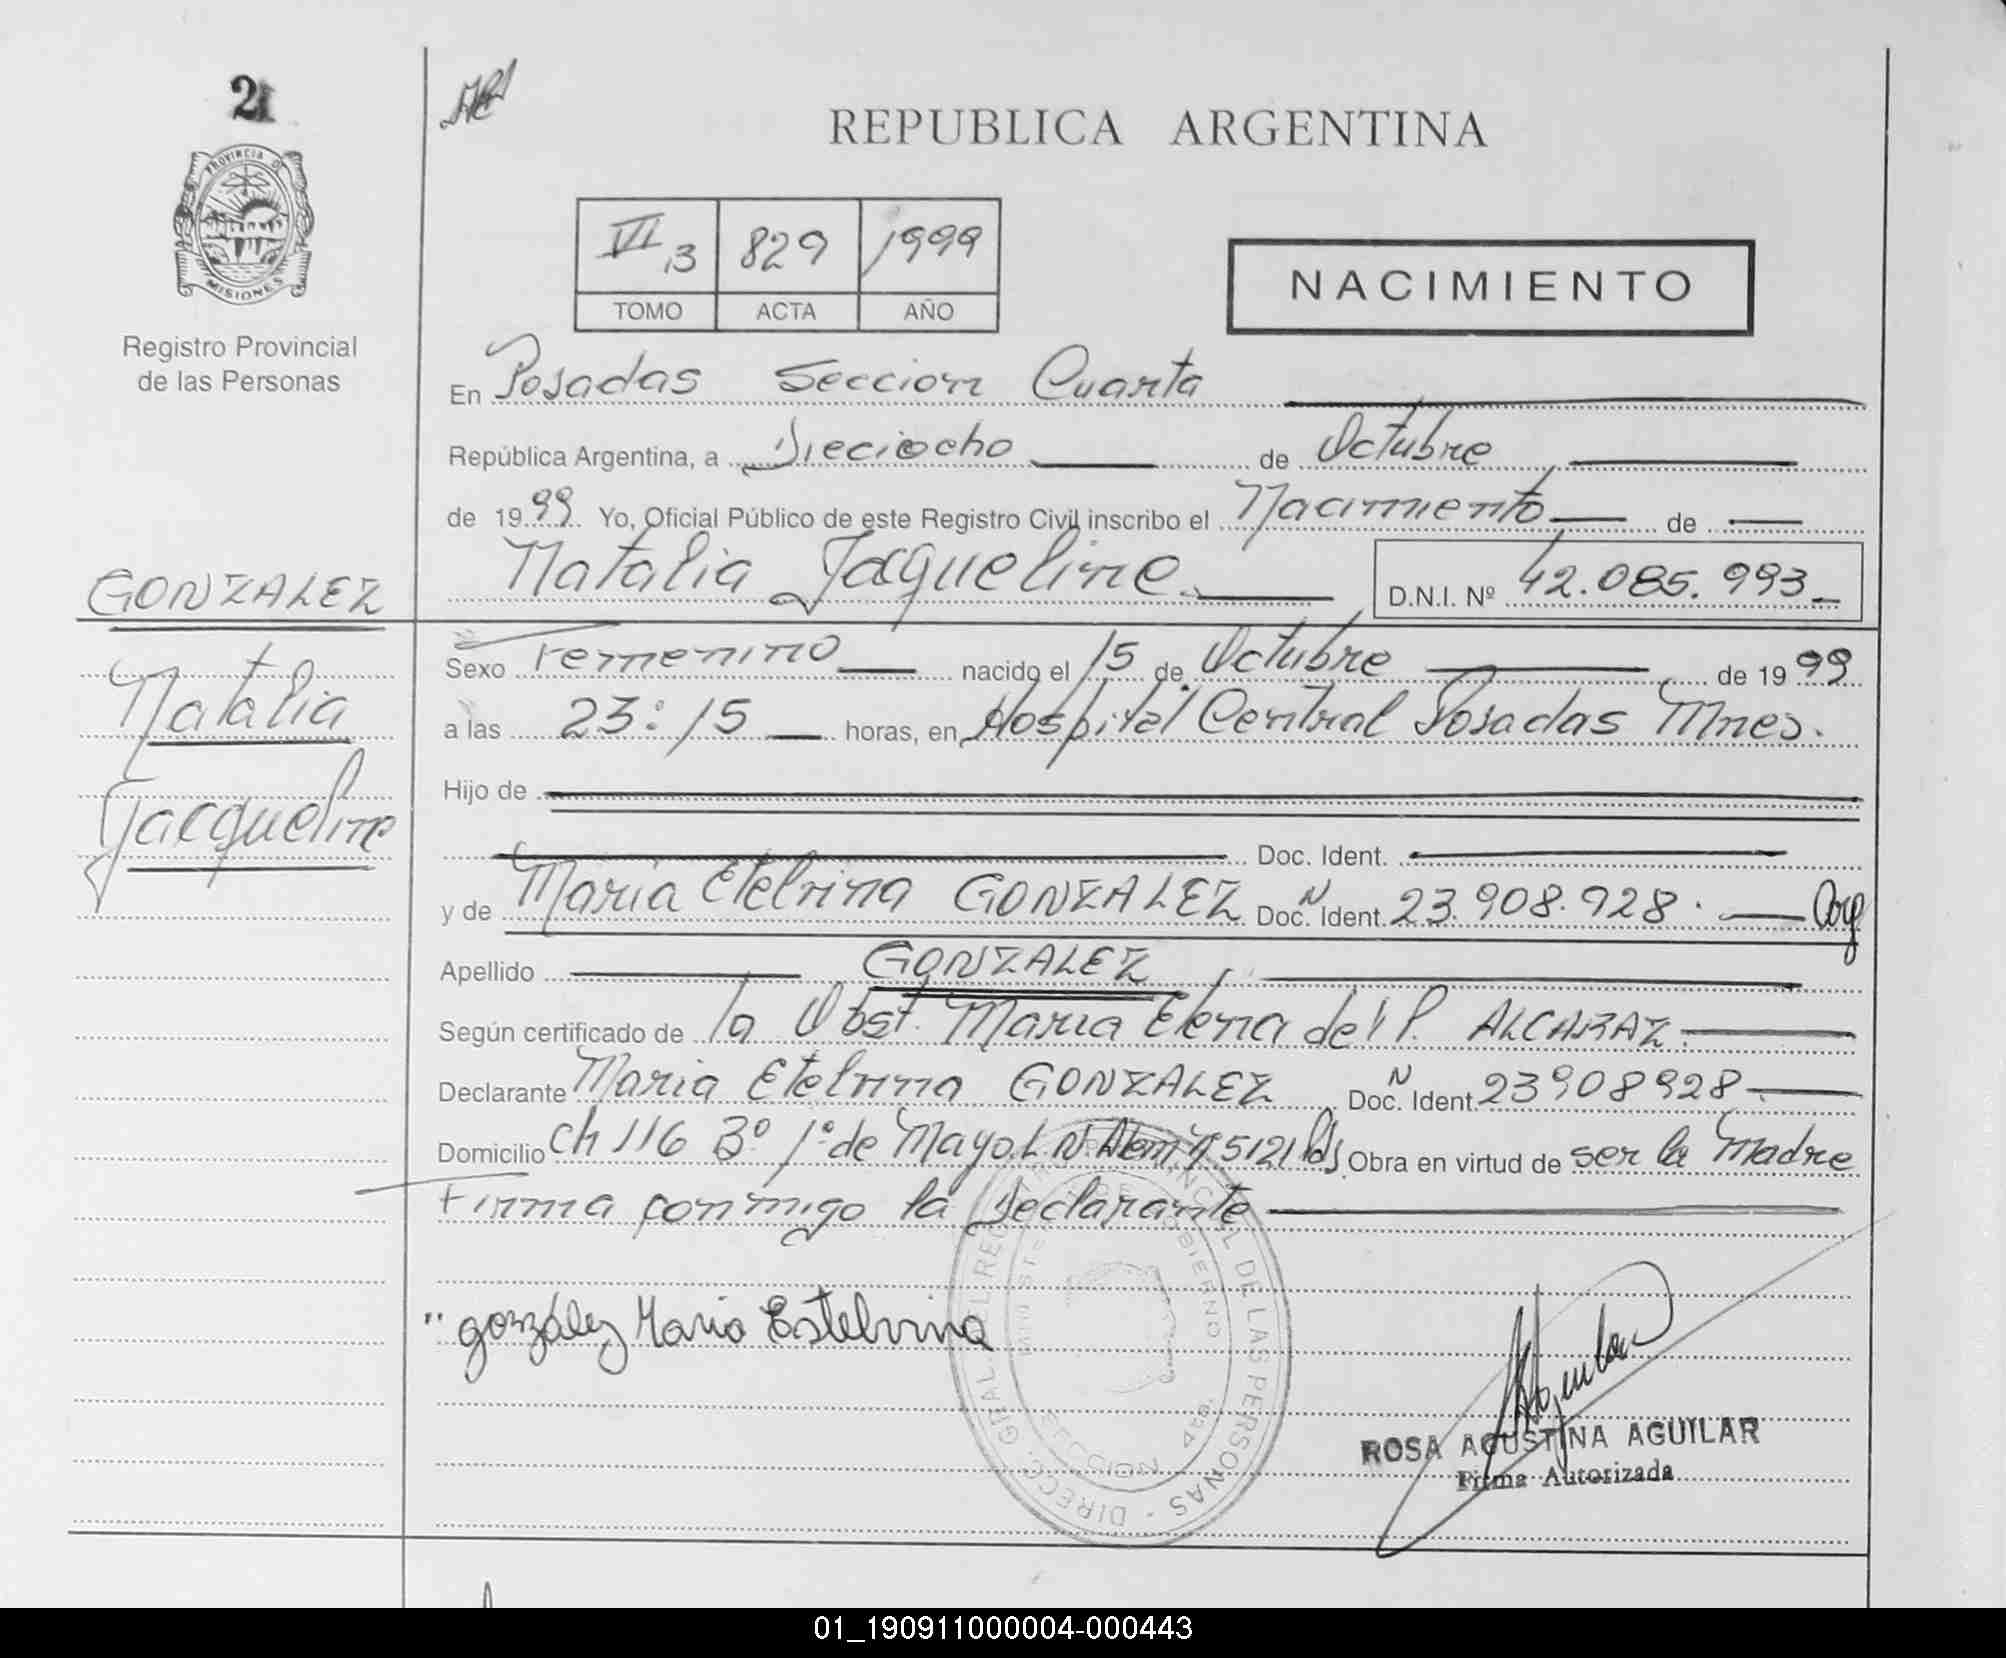 21
PROVINCIA DE
MISIONES
Registro Provincial
de las Personas
GONZALEZ
Natalia
Jacqueline
REPUBLICA ARGENTINA
VI 3 829 1999
TOMO ACTA AÑO
NACIMIENTO
En Posadas Seccion Cuarta
República Argentina, a Dieciocho de Octubre
de 1999. Yo, Oficial Público de este Registro Civil inscribo el Nacimiento de
Natalia Jaqueline D.N.I. Nº 42.085.993
Sexo Femenino nacido el 15 de Octubre de 1999
a las 23:15 horas, en Hospital Central Posadas Mnes.
Hijo de
Doc. Ident.
y de Maria Etelvina GONZALEZ Doc. N Ident. 23.908.928.
Apellido GONZALEZ
Según certificado de la Obst. Maria Elena del P. ALCARAZ
Declarante Maria Etelvina GONZALEZ Doc. N Ident. 23908928
Domicilio ch 116 Bº 1º de Mayo L N Alem Nº 5121 Pds. Obra en virtud de ser la Madre
Firma conmigo la Declarante
DIREC. GRAL. DEL REG. PROVINCIAL DE LAS PERSONAS
MINISTERIO DE GOBIERNO
SECCION 4ta.
"gonzález Maria Estelvina
ROSA AGUSTINA AGUILAR
Firma Autorizada
01_190911000004-000443